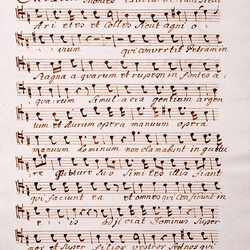 Montes
Arietes et Colles sicut agni o
vium qui convertit Petram in
Stagna aquarum et rupem in fontes a
quarum Simulacra gentium argen
tum et Aurum opera manuum opera
manuum dominum non clamabunt in guttu
re gutture suo Similes illis fiant
qui faciunt ea et omnes qui Confidunt in
is adjiciat Dominus Super
vos et Super filios vestros